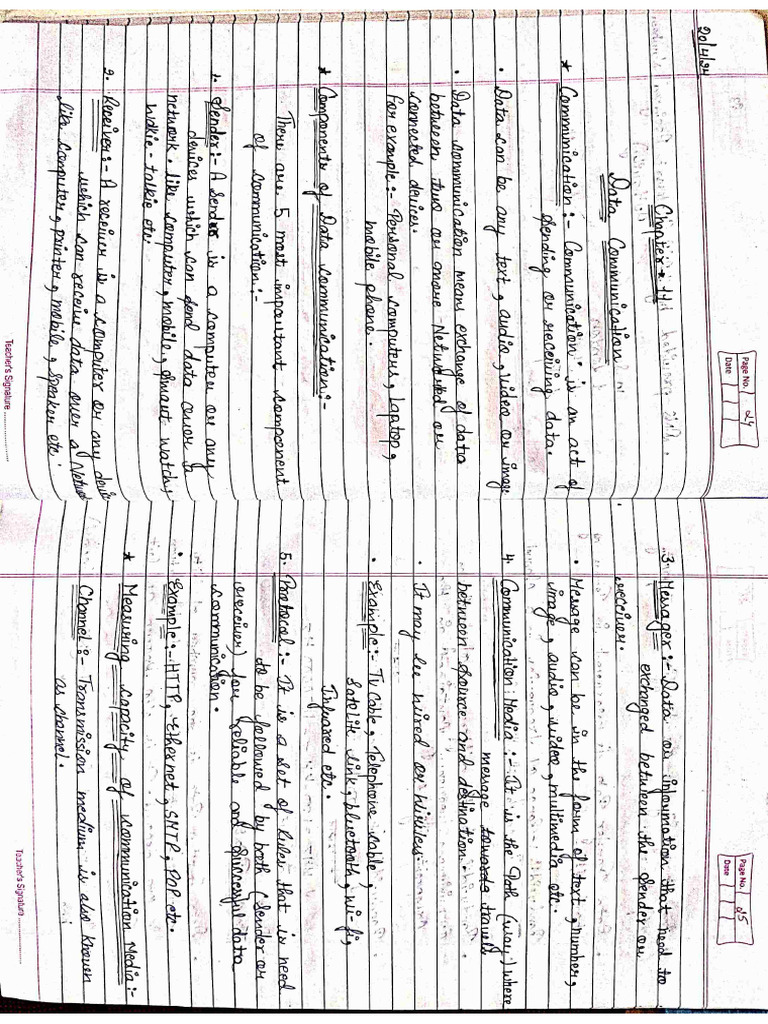 20/4/24
Page No. 24
Date
Chapter - 11
Data Communication
* Communication :- Communication is an act of
sending or receiving data.
• Data can be any text, audio, video or image
• Data communication means exchange of data
between two or more Networked or
connected devices.
For example :- Personal computers, Laptop,
mobile phone.
* Components of Data communication :-
There are 5 most important component
of communication :-
1. Sender :- A sender is a computer or any
devices which can send data over a
network. like computer, mobile, smart watch,
walkie-talkie etc.
2. Receiver :- A receiver is a computer or any device
which can receive data over a Network
like computer, printer, mobile, speaker etc.
Teacher's Signature
Page No. 25
Date
3. Messager :- Data or information that need to
exchanged between the sender or
receiver.
• Message can be in the form of text, number,
image, audio, video, multimedia etc.
4. Communication Media :- It is the Path (way) where
message towards travels
between source and destination.
• It may be wired or wireless
• Example :- TV Cable, Telephone cable,
Satelite link, bluetooth, wi-fi,
Infrared etc.
5. Protocol :- It is a set of Rules that is need
to be followed by both (Sender or
receiver) for reliable and successful data
communication.
• Example :- HTTP, Ethernet, SMTP, POP etc.
* Measuring capacity of communication Media :-
Channel :- Transmission medium is also known
as channel.
Teacher's Signature